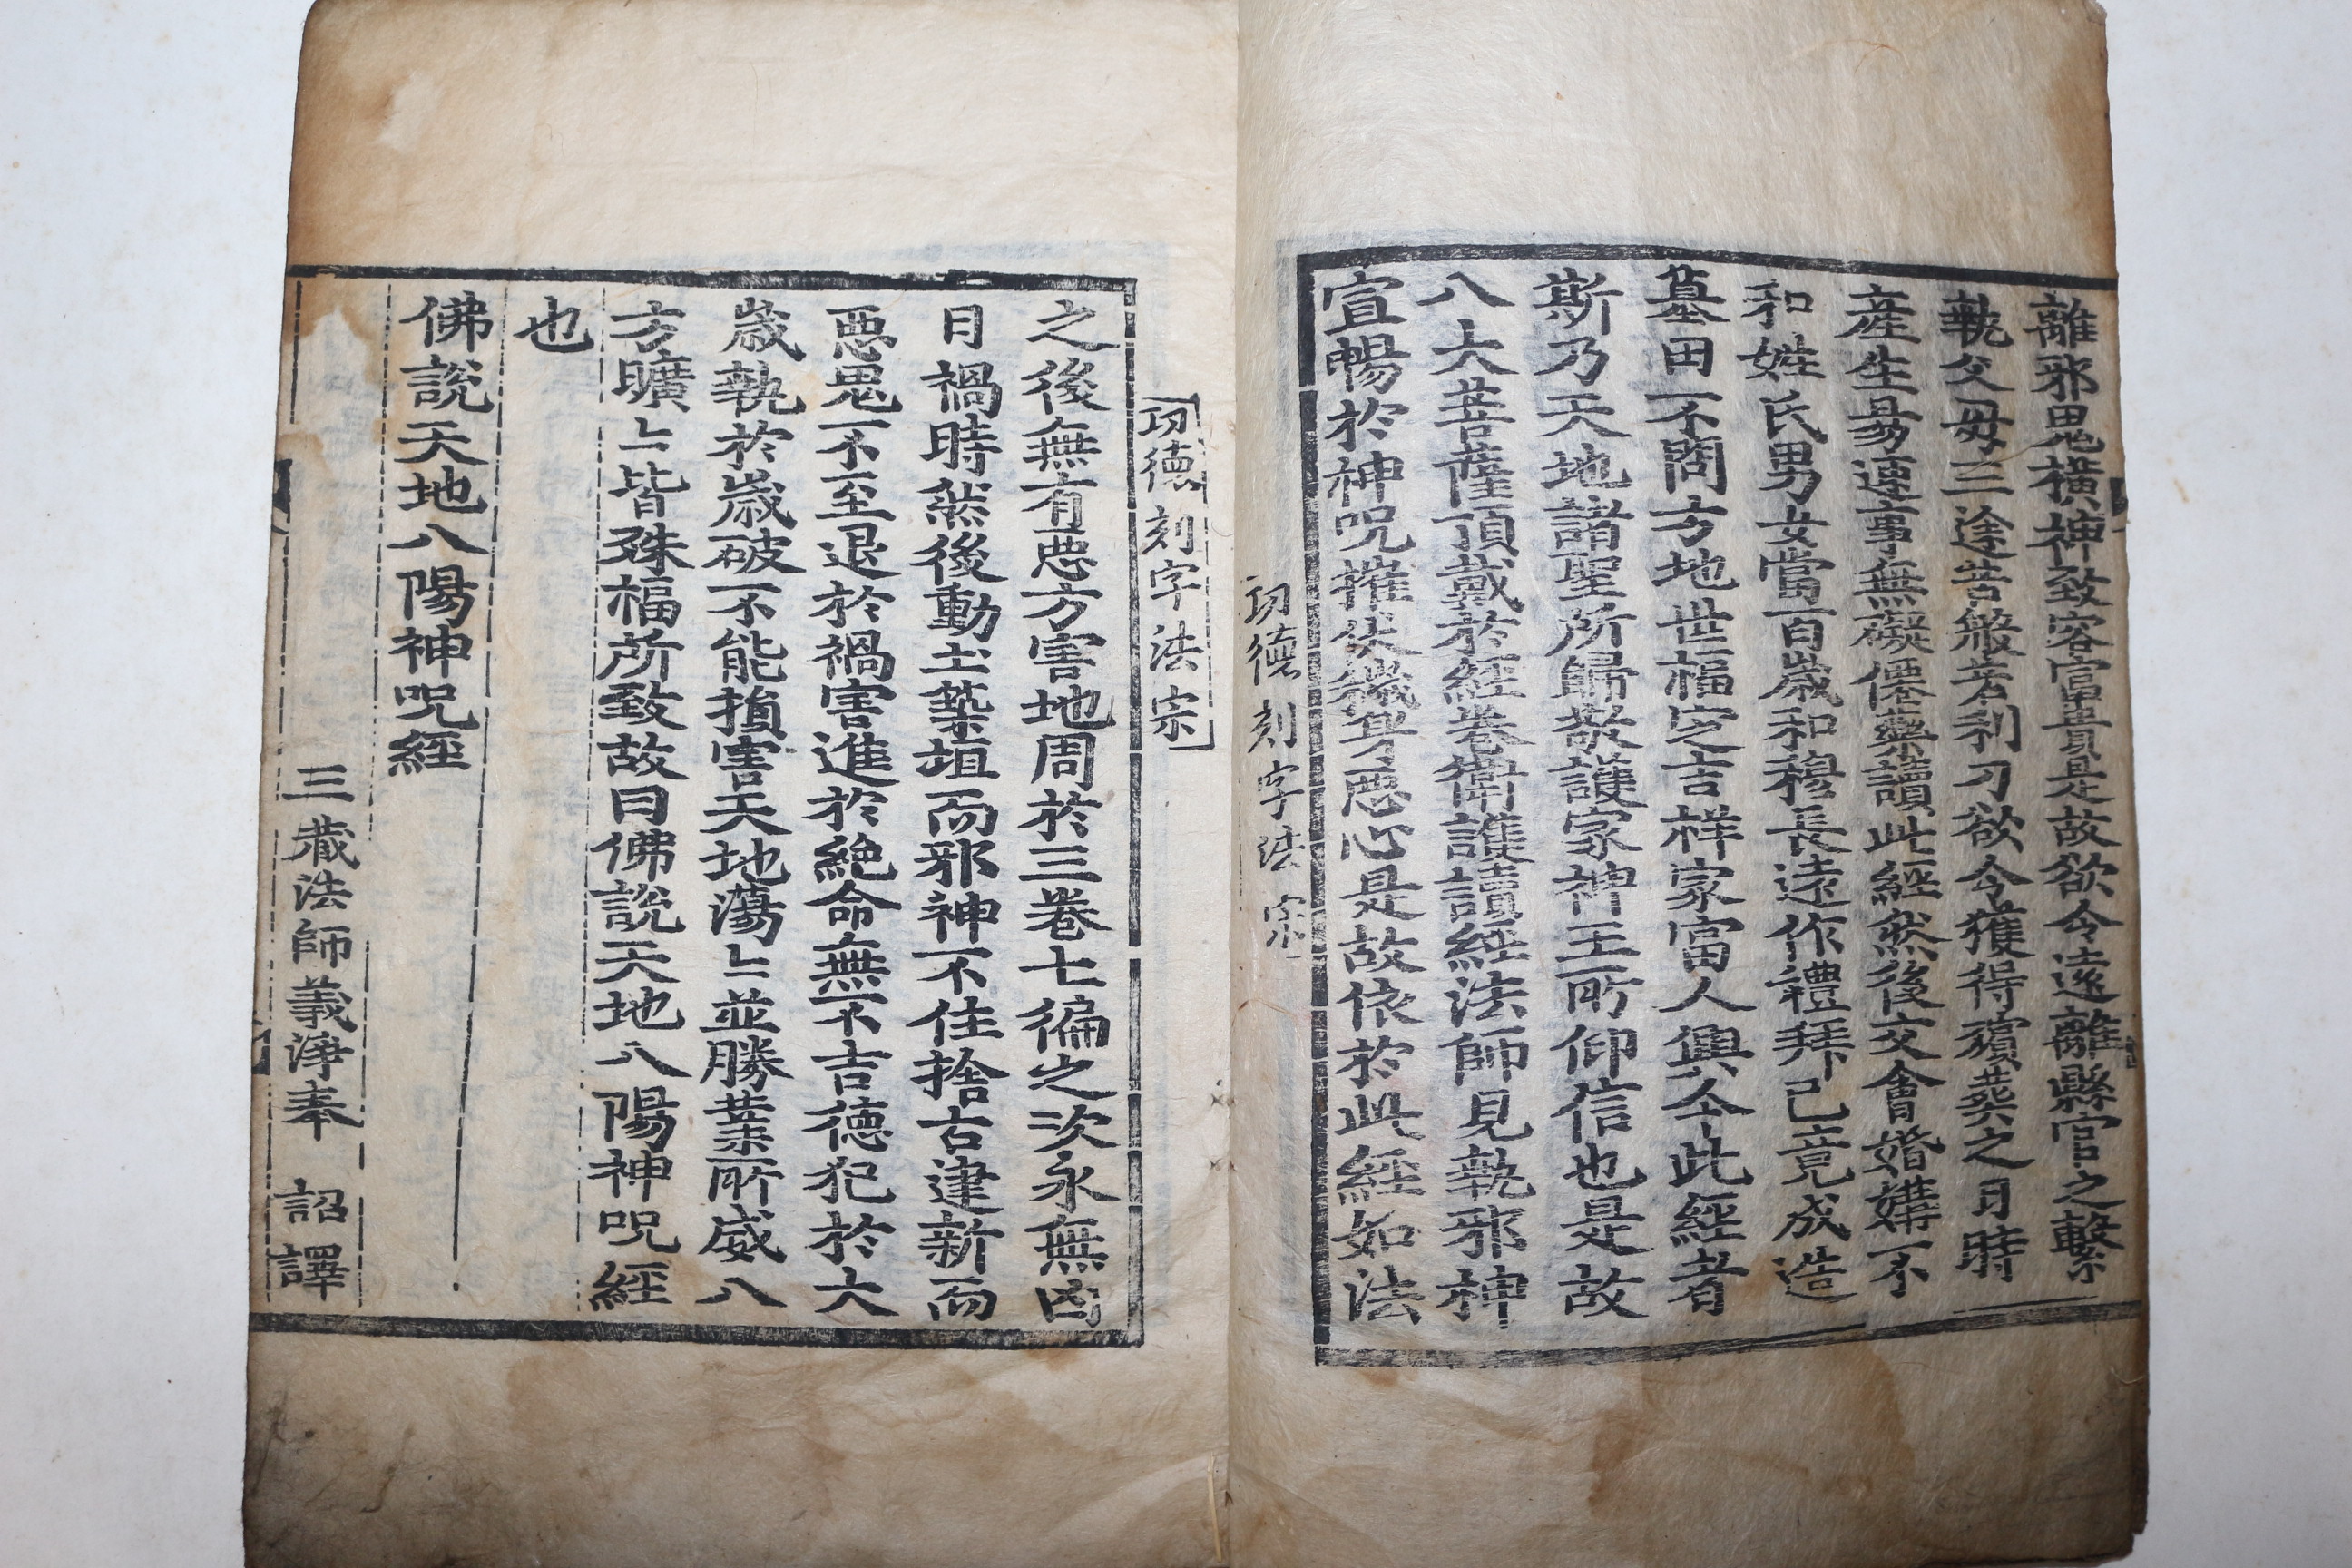 離邪鬼橫神致容富貴是故欲令遠離縣官之繫
執父母三途苦厄若利刃欲令獲得殯葬之月時
産生易遑事無礙僊藥讀此經然後交會婚媾不
和姓氏男女當百歲和穆長遠作禮拜已竟成造
墓田不問方地世福空吉祥家富人興今此經者
斯乃天地諸聖所歸敬護家神王所仰信也是故
八大菩薩頂戴於經卷衛護讀經法師見執邪神
宣暢於神呪摧伏㡬身悪心是故依於此經如法
功德 刻字法宗
功德 刻字法宗
之後無有悪方害地周於三卷七徧之次永無凶
日禍時然後動土築垣而邪神不住捨古建新而
悪鬼不至退於禍害進於絶命無不吉德犯於大
歲執於歲破不能損害天地蕩〻並勝業所威八
方曠〻皆殊福所致故曰佛說天地八陽神呪經
也
佛說天地八陽神呪經
三藏法師義淨奉 詔譯